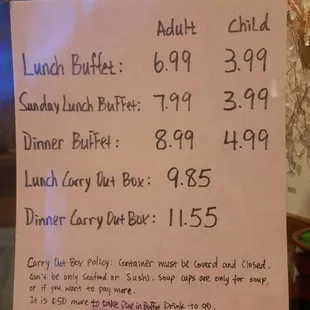 Adult Child
Lunch Buffet: 6.99 3.99
Sunday Lunch Buffet: 7.99 3.99
Dinner Buffet: 8.99 4.99
Lunch Carry Out Box: 9.85
Dinner Carry Out Box: 11.55
Carry Out Box Policy: Container must be Coverd and Closed.
Can't be only Seafood or Sushi. Soup cups are only for soup,
or if you want to pay more.
It is $.50 more to take Dine in Buffet Drink to go.